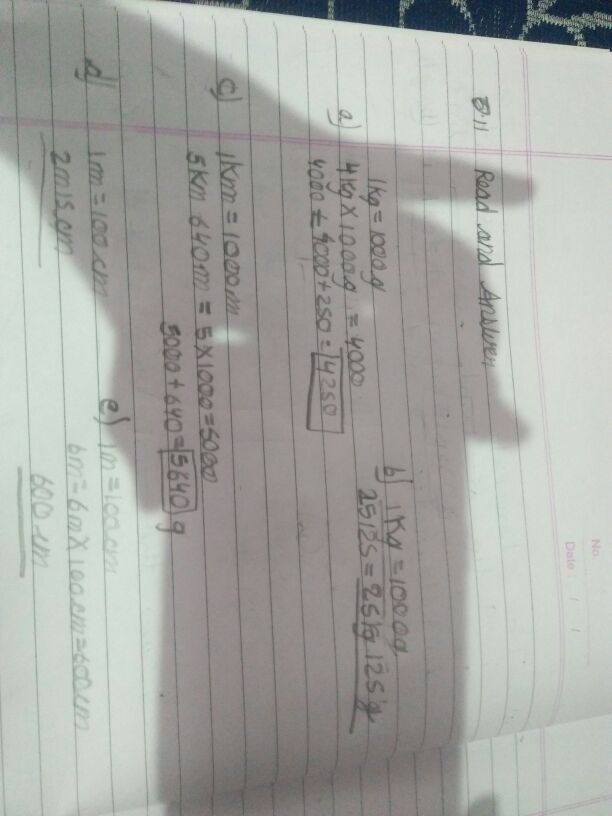 No.
Date : / /
8.11 Read and Answer
1Kg = 1000g
a) 4Kg X 1000g = 4000
4000 = 4000 + 250 = 4250
b) 1Kg = 1000g
25125 = 25kg 125g
c) 1Km = 1000m
5Km 640m = 5 X 1000 = 5000
5000 + 640 = 5640 g
d) 1m = 100cm
2m 15cm
e) 1m = 100cm
6m = 6m X 100cm = 600cm
600cm